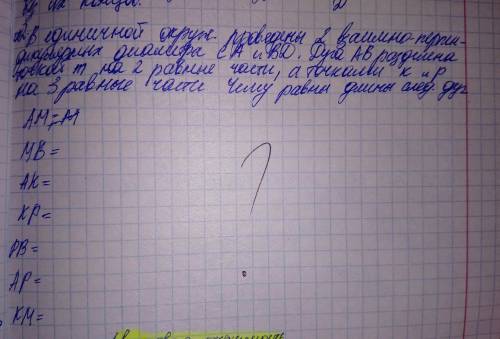 их концы.
В единичной окруж. проведены 2 взаимно-перпен-
дикулярных диаметра CA и BD. Дуга AB разделена
точкой m на 2 равные части, а точками K и P
на 3 равные части. Чему равны длины след. дуг
AM =
MB =
AK =
KP =
PB =
AP =
KM =
?